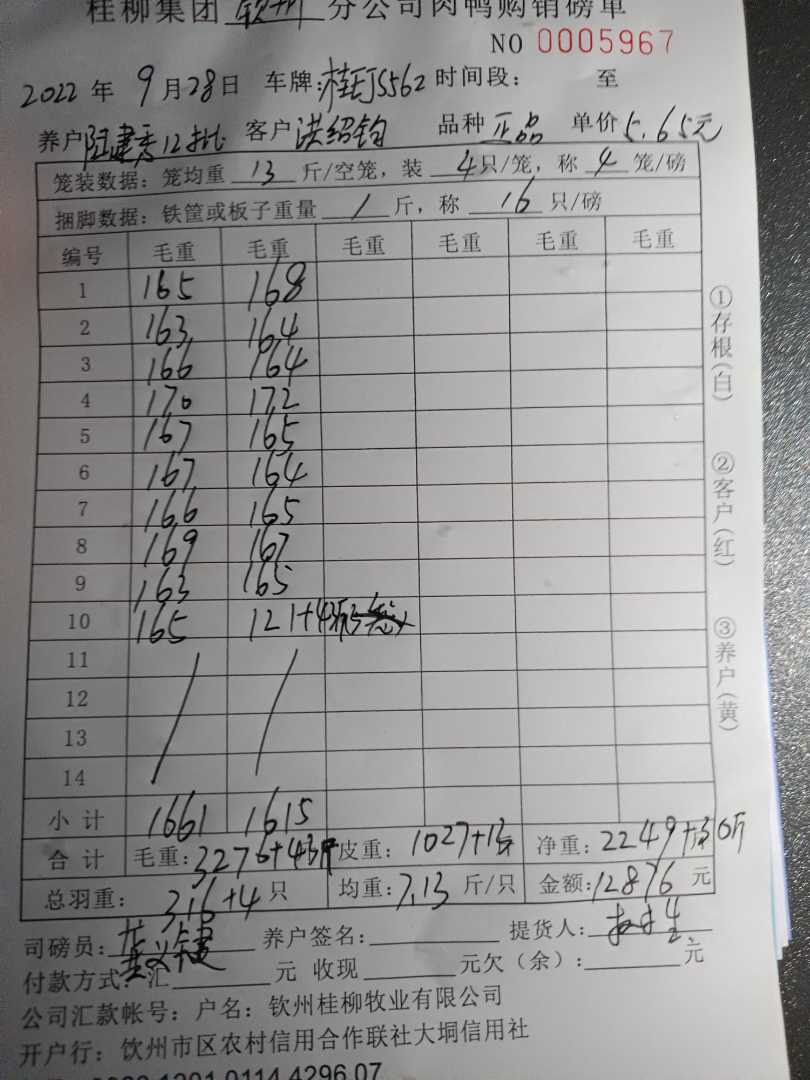 桂柳集团 钦州 分公司肉鸭购销磅单
NO 0005967
2022 年 9 月 28 日 车牌:桂EJS562 时间段: 至
养户 陆建秀12批 客户 洪绍钧 品种 正品 单价 5.65元
笼装数据:笼均重 13 斤/空笼,装 4 只/笼,称 4 笼/磅
捆脚数据:铁筐或板子重量 1 斤,称 16 只/磅
编号 毛重 毛重 毛重 毛重 毛重 毛重
1 165 168
2 163 164
3 166 164
4 170 172
5 167 165
6 167 164
7 166 165
8 169 167
9 163 165
10 165 121+43斤
11
12
13
14
小计 1661 1615
合计 毛重:3276+43斤 皮重:1027+13斤 净重:2249+30斤
总羽重: 316+4 只 均重:7.13 斤/只 金额:12876 元
司磅员: 养户签名: 提货人:
付款方式:汇 元 收现 元欠(余): 元
公司汇款帐号:户名:钦州桂柳牧业有限公司
开户行:钦州市区农村信用合作联社大垌信用社
①存根(白)
②客户(红)
③养户(黄)